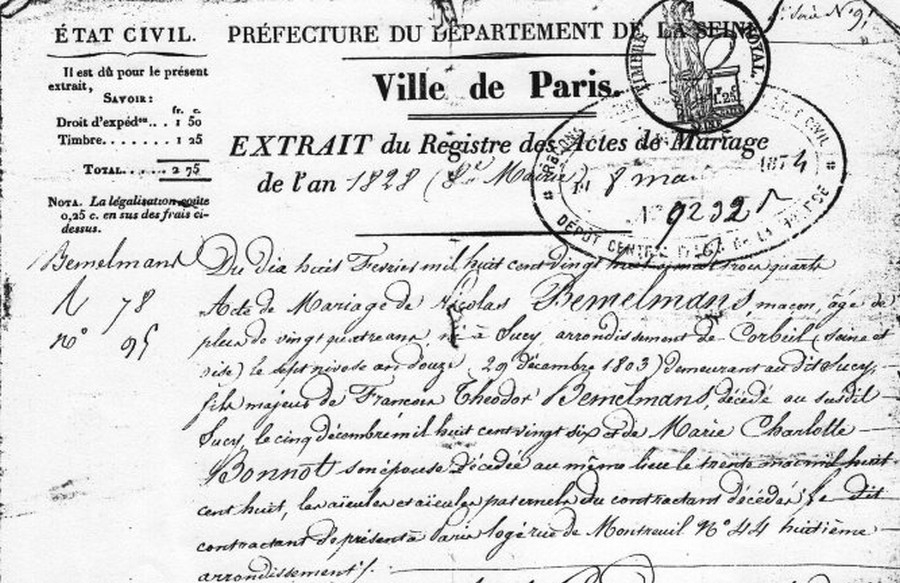 ÉTAT CIVIL.
Il est dû pour le présent
extrait,
SAVOIR:
fr. c.
Droit d'expéd.on.. 1 50
Timbre....... 1 25
TOTAL..... 2 75
NOTA. La légalisation coûte
0,25 c. en sus des frais ci-
dessus.
PRÉFECTURE DU DÉPARTEMENT DE LA SEINE
Série N° 95
TIMBRE ROYAL.
1.25
SEINE
Ville de Paris.
EXTRAIT du Registre des Actes de Mariage
de l'an 1828 (8e Mairie)
ETAT CIVIL
8 mai 1874
9232
DÉPÔT CENTRAL DE LA
Bemelmans
R 78
n° 95
Du dix huit Fevrier mil huit cent vingt huit à trois quarts
Acte de Mariage de Nicolas Bemelmans, maçon, âgé de
plus de vingt quatre ans, né à Sucy, arrondissement de Corbeil (Seine et
oise) le sept nivose an douze (29 décembre 1803) demeurant au dit Sucy,
fils majeur de Francois Theodor Bemelmans, décédé au susdit
Sucy, le cinq décembre mil huit cent vingt six et de Marie Charlotte
Bonnot son épouse décédée au même lieu le trente mai mil huit
cent huit, les aïeules et aïeules paternels du contractant décédés; le dit
contractant de présent à Paris logé rue de Montreuil N° 44 huitième
arrondissement/.